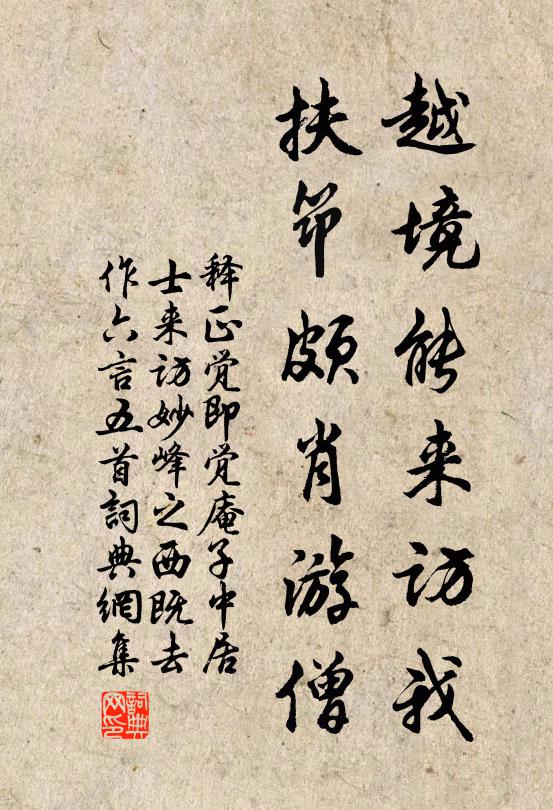 越境能来访我
扶笻颇肖游僧
释正觉即觉庵子中居
士来访妙峰之西既去
作六言五首詞典網集
詞典网印